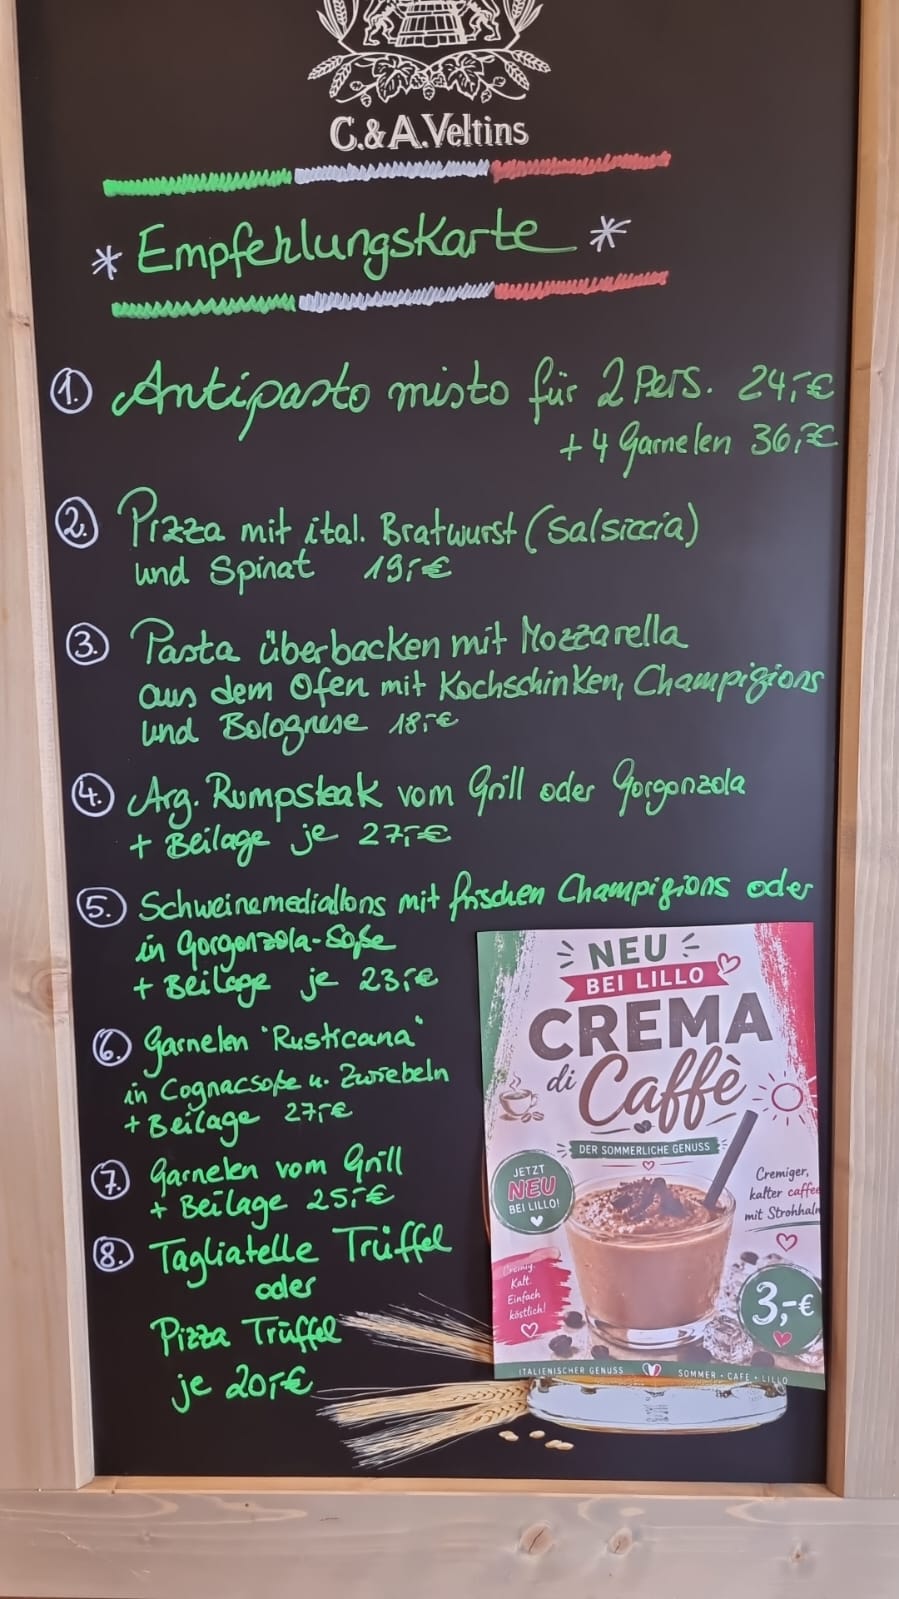 C.&A.Veltins
* Empfehlungskarte *
1. Antipasto misto für 2 Pers. 24,-€
+ 4 Garnelen 36,-€
2. Pizza mit ital. Bratwurst (Salsiccia)
und Spinat 19,-€
3. Pasta überbacken mit Mozzarella
aus dem Ofen mit Kochschinken, Champigions
und Bolognese 18,-€
4. Arg. Rumpsteak vom Grill oder Gorgonzola
+ Beilage je 27,-€
5. Schweinemediallons mit frischen Champigions oder
in Gorgonzola-Soße
+ Beilage je 23,-€
6. Garnelen "Rusticana"
in Cognacsoße u. Zwiebeln
+ Beilage 27,-€
7. Garnelen vom Grill
+ Beilage 25,-€
8. Tagliatelle Trüffel
oder
Pizza Trüffel
je 20,-€
NEU
BEI LILLO
CREMA
di Caffè
DER SOMMERLICHE GENUSS
JETZT
NEU
BEI LILLO!
Cremiger,
kalter caffee
mit Strohhalm
Cremig.
Kalt.
Einfach
köstlich!
3,-€
ITALIENISCHER GENUSS SOMMER • CAFE • LILLO